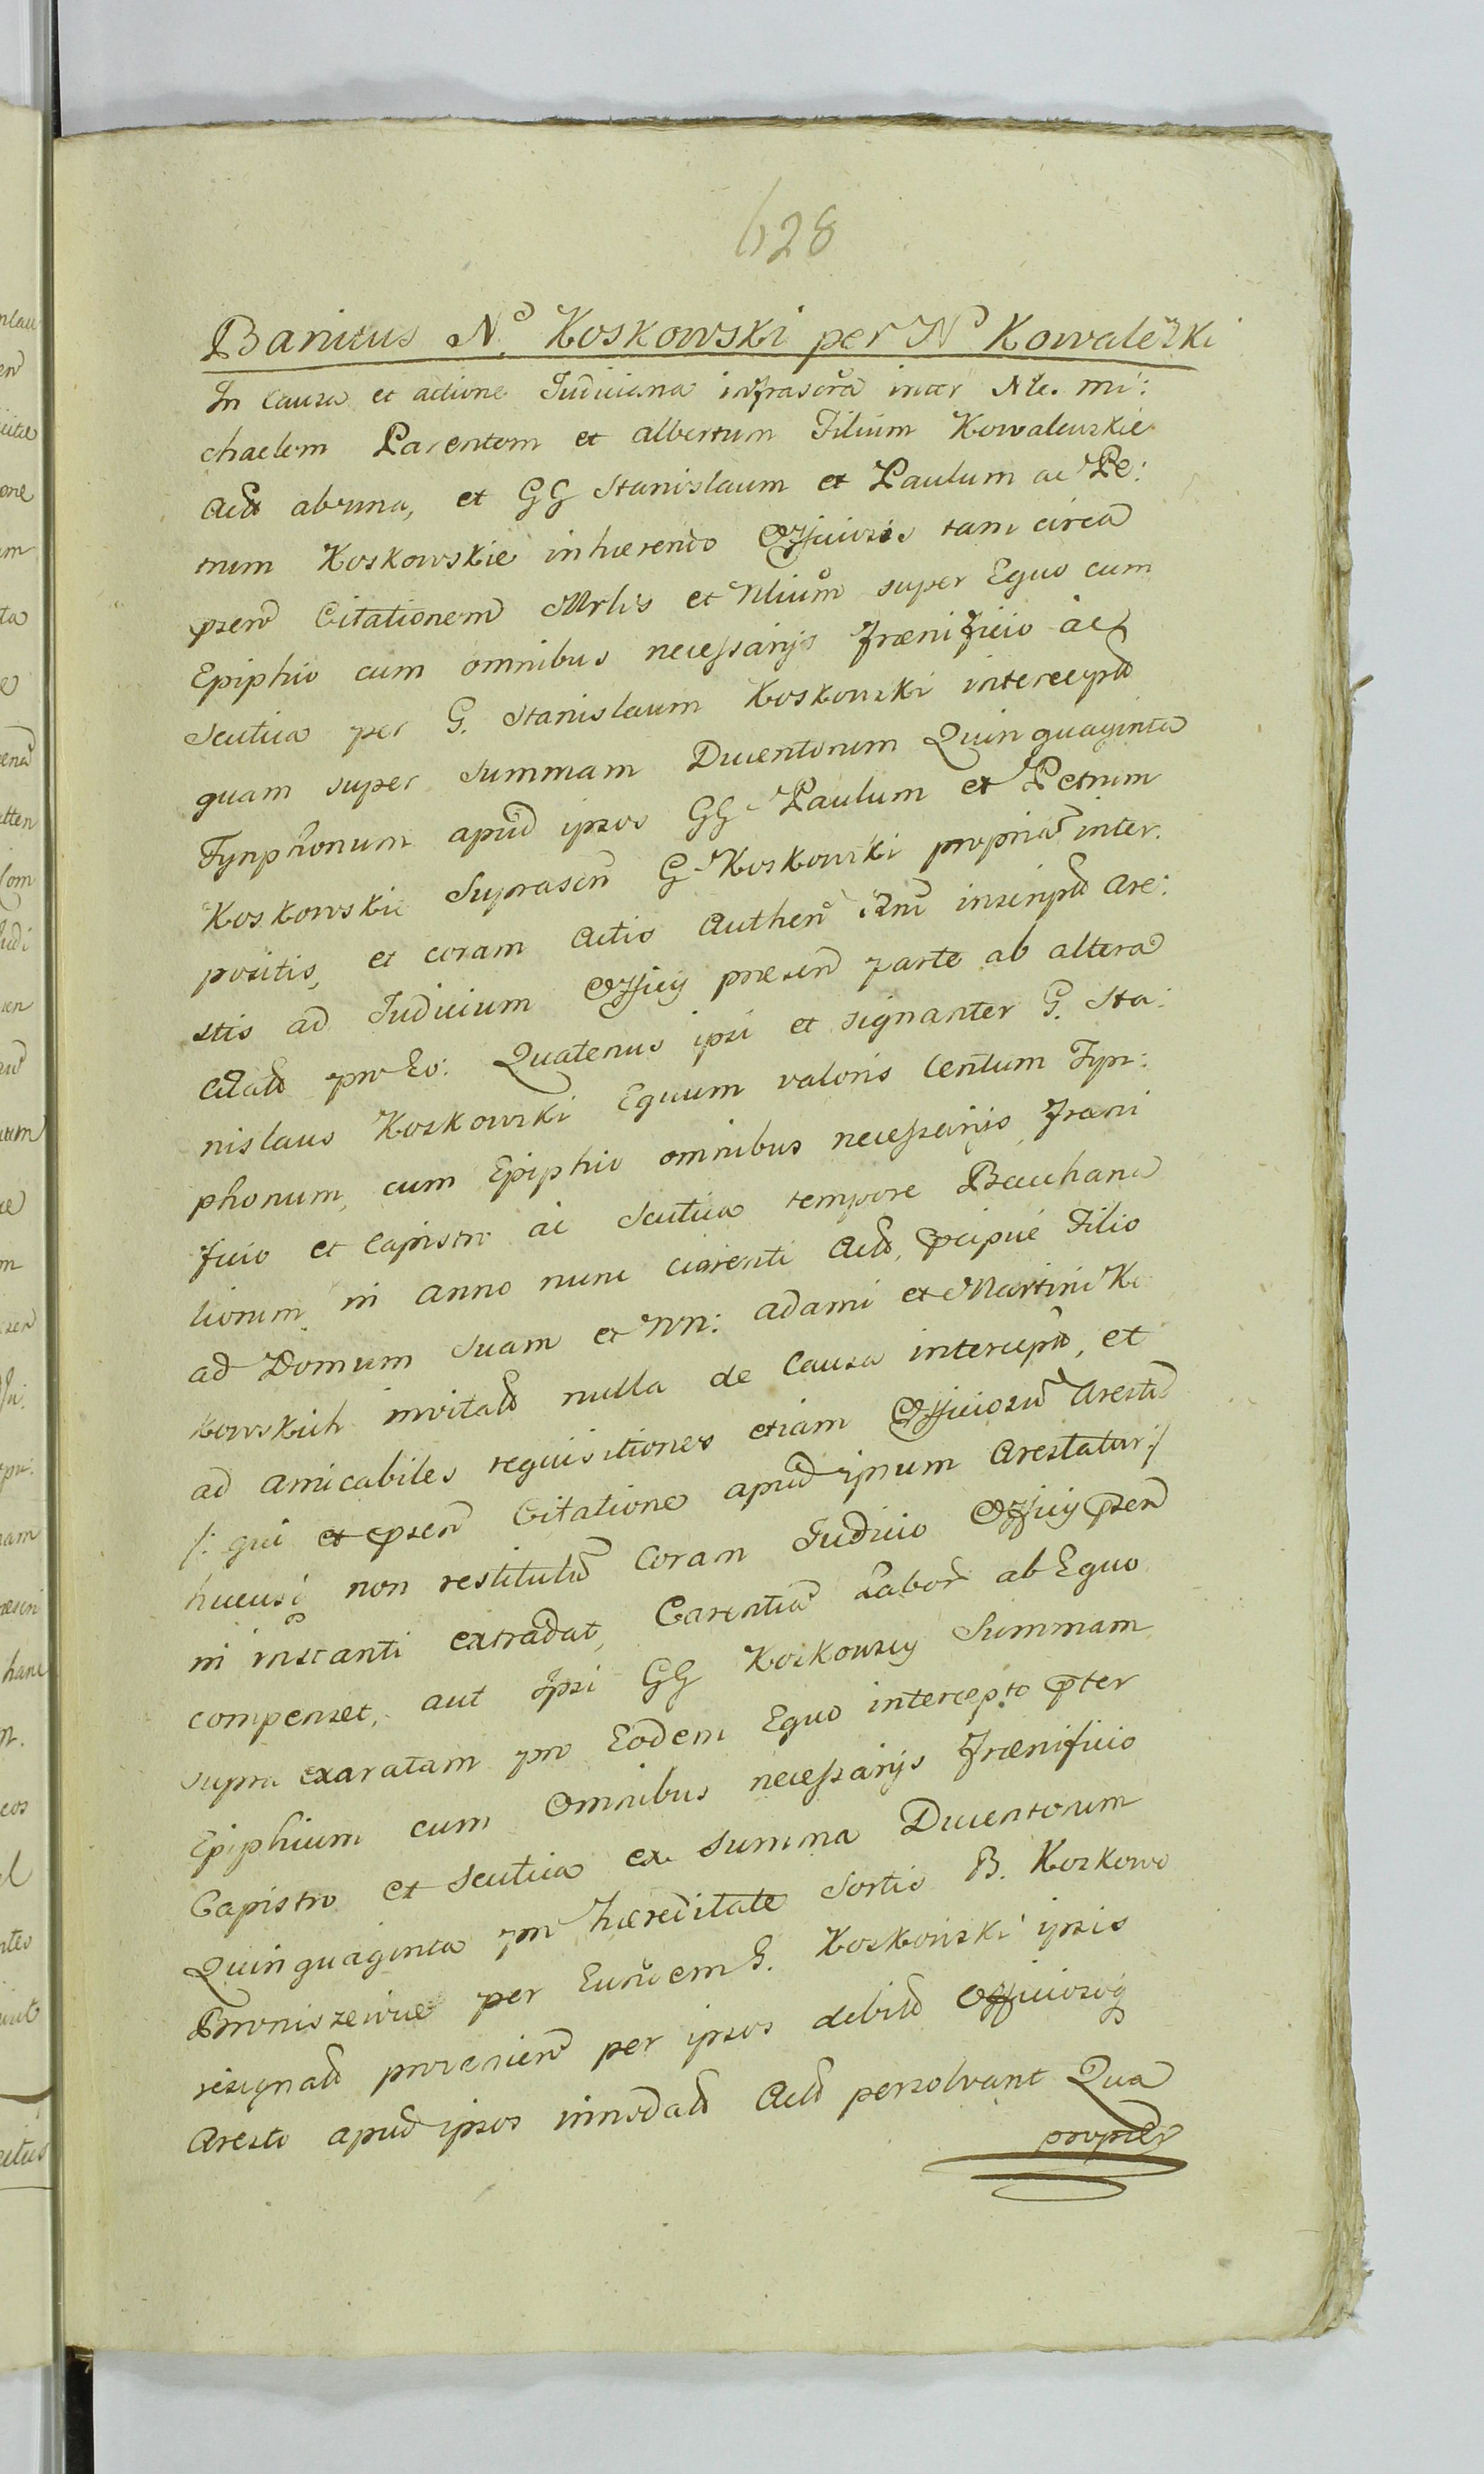 628
Banitus N. Koskowski per N Kowaleski
In Causa et actione Judiciaria infrascra inter Nle. Mi:
chaelem Parentem et Albertum Filium Kowalewskie
Act ab una, et GG Stanislaum et Paulum ac Pe:
trum Koskowskie inhærendo Officiosis tam circa
psen Citationem Mrlis et Nlium super Equo cum
Epiphio cum omnibus necessarijs frænificio ac
Scutica per G. Stanislaum Koskowski intercepto
quam super Summam Ducentorum Quinquaginta
Tynphonum apud ipsos GG Paulum et Petrum
Koskowskie Suprascri G Koskowski propria inter:
positis, et coram Actis Authen inscripto Are:
stis ad Judicium Officij præsen parte ab altera
Citato pro Eo: Quatenus ipsi et signanter G. Sta:
nislaus Koskowski Equum valoris Centum Tyn:
phonum, cum Epiphio omnibus necessarijs fræni
ficio et Capistro ac Scutica tempore Bacchana
liorum in Anno nunc currenti Acto, pcipue Filio
ad Domum Suam et NN: Adami et Martini Ko
kowskich invitato nulla de Causa intercepto, et
ad amicabiles requisitiones etiam Officiosum Arestu
/: qui et psen Citatione apud ipsum Arestatur :/
hucusq non restitutu Coram Judicio Officij psen
in instanti extradat, Carentia Labor ab Equo
compenset, aut Ipsi GG Koskowscy Summam
supra exaratam pro Eodem Equo intercepto pter
Epiphium cum Omnibus necessarijs frænificio
Capistro et Scutica ex Summa Ducentorum
Quinquaginta pro hæreditate Sortis B. Koskowo
Broniszewice per Eundem G. Koskowski ipsis
resignato provenien per ipsos debito Officiosoq
Aresto apud ipsos innodato Acto persolvant Qua
propter